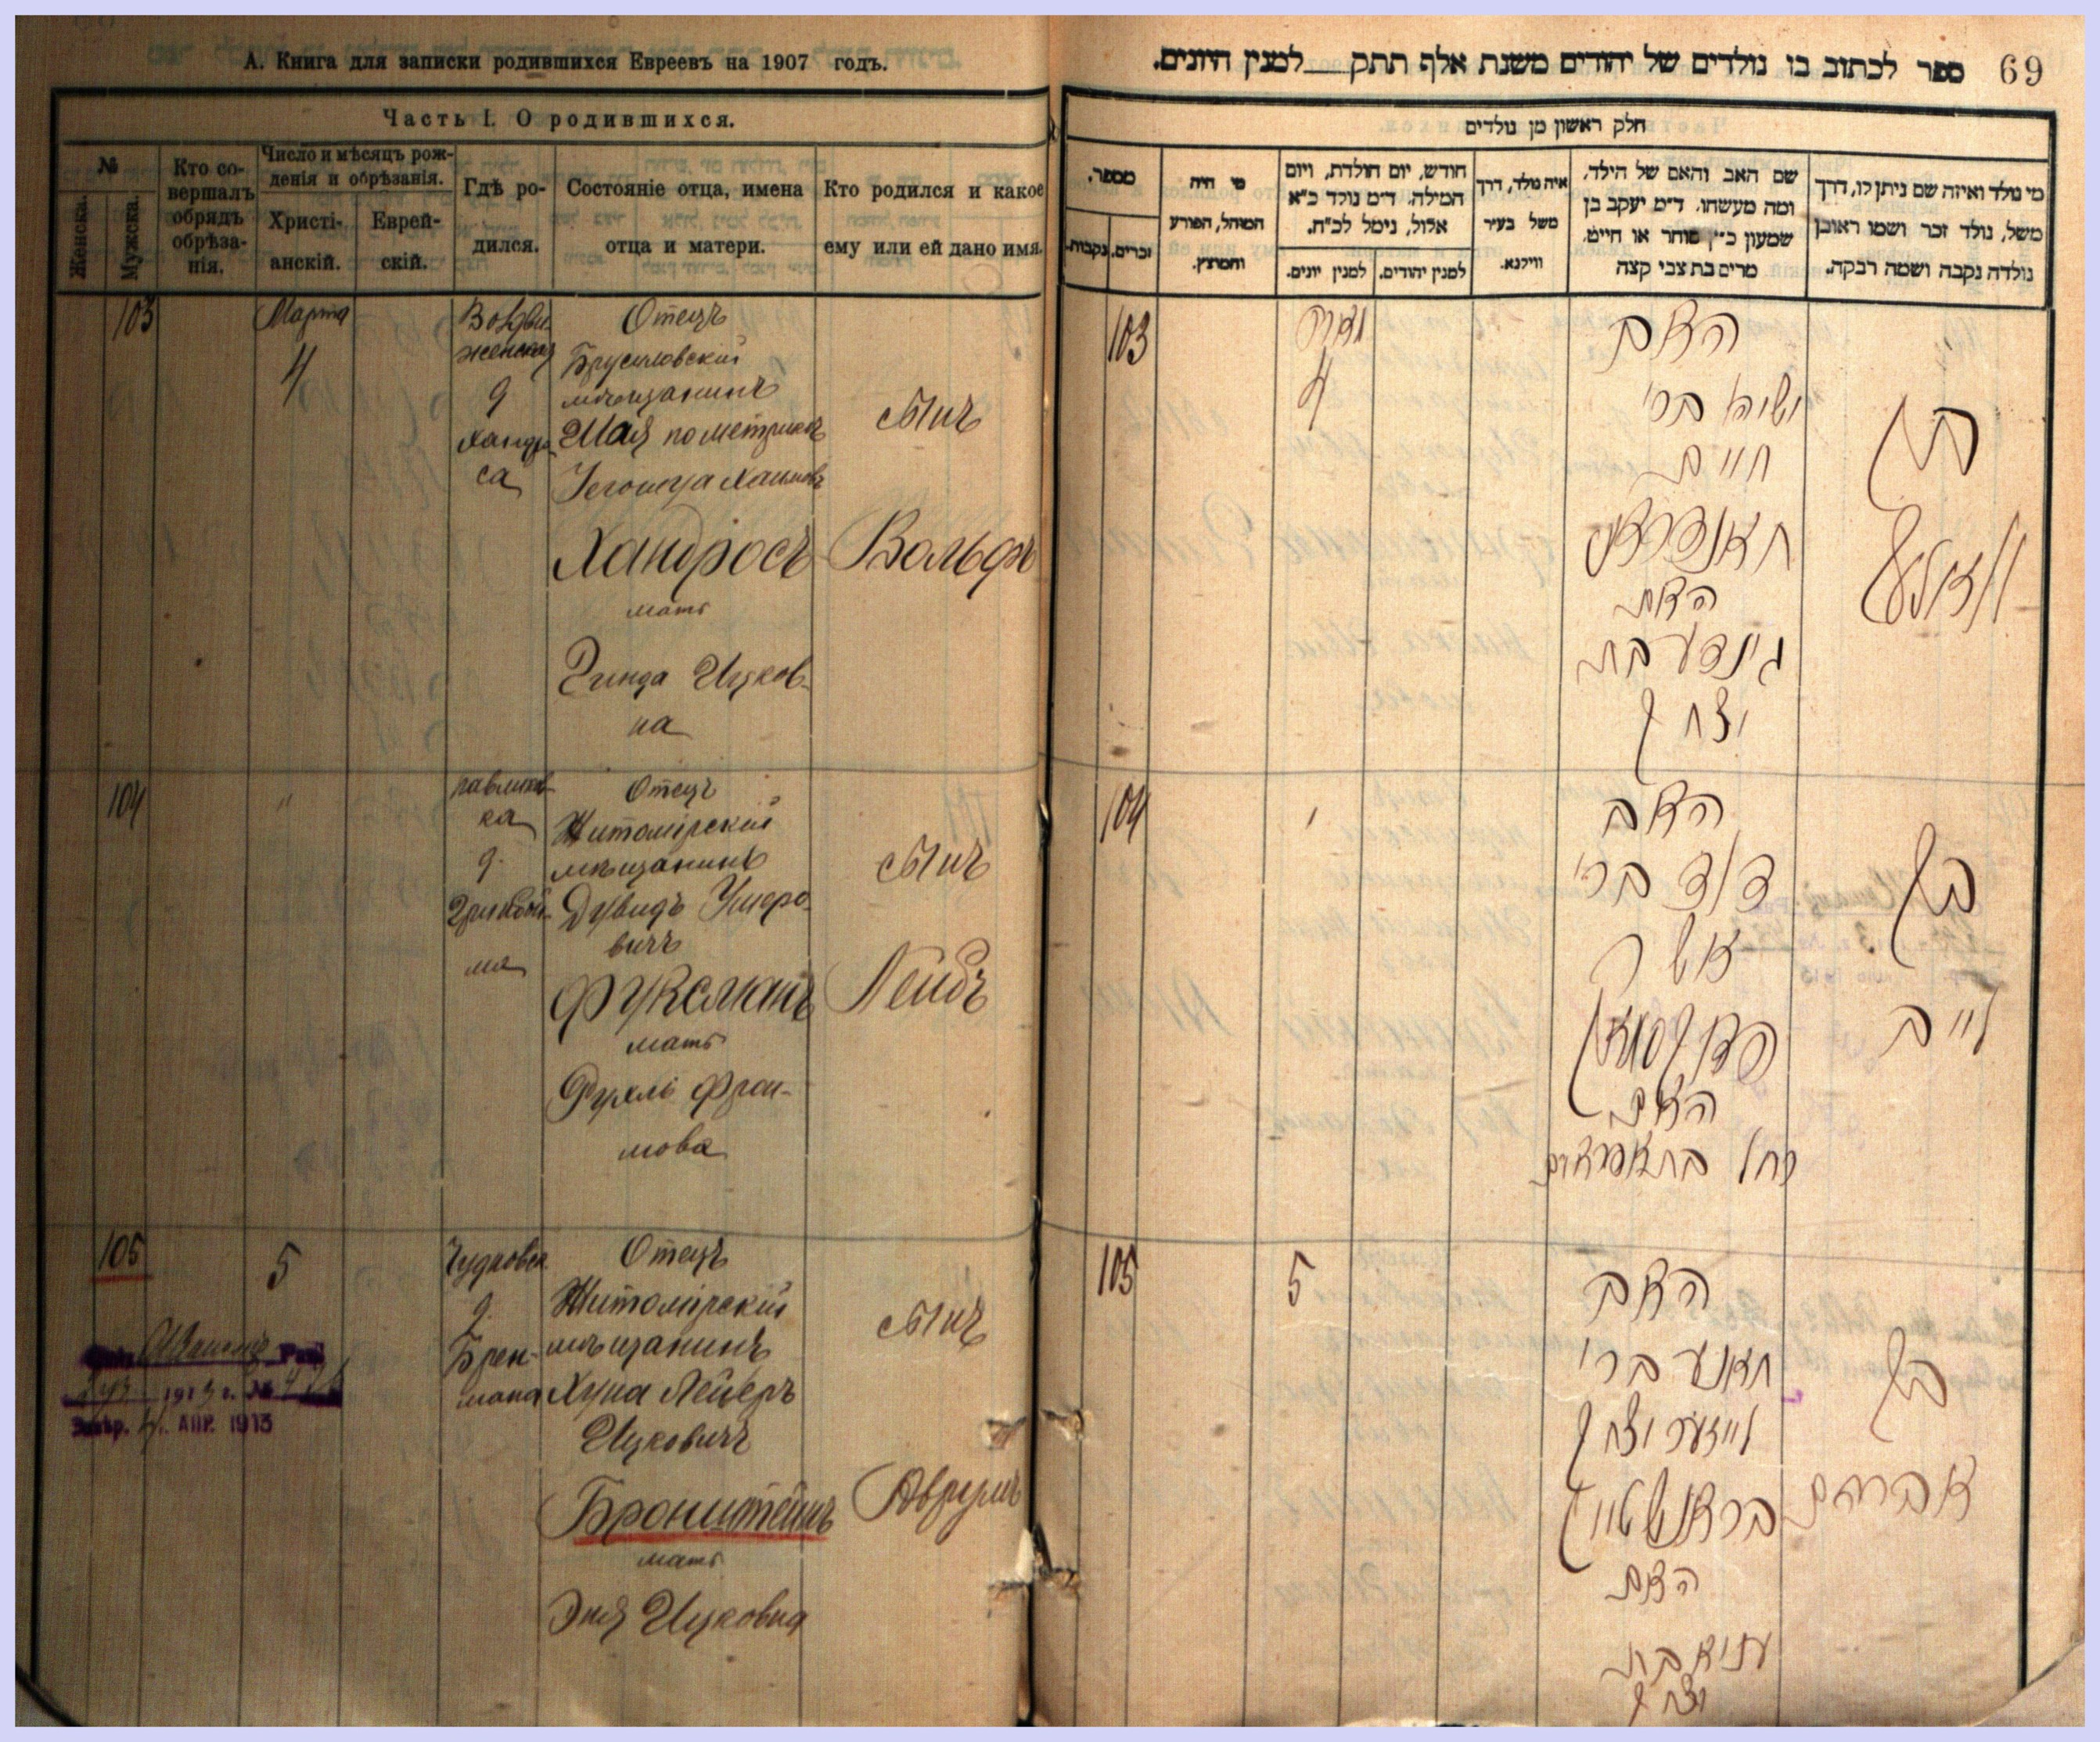 А. Книга для записки родившихся Евреевъ на 1907 годъ.
Часть I. О родившихся.
№
Женска.
Мужска.
Кто со-
вершалъ
обрядъ
обрѣза-
нія.
Число и мѣсяцъ рож-
денія и обрѣзанія.
Христі-
анскій.
Еврей-
скій.
Гдѣ ро-
дился.
Состояніе отца, имена
отца и матери.
Кто родился и какое
ему или ей дано имя.
103
Марта
4
д
Хандро
са
Отецъ
Брусиловскій
мѣщанинъ
Шая по метрикѣ
Хаимовъ
Хандросъ
мать
Гинда Ицков-
на
сынъ
Вольфъ
104
"
ка
д.
Отецъ
Житомірскій
мѣщанинъ
Дувидъ Ушеро-
вичъ
Фуксманъ
мать
Рухль Фрои-
мова
сынъ
Лейбъ
105
5
Чудновск
д.
Брен-
мана
Отецъ
Житомірскій
мѣщанинъ
Хуна Лейзеръ
Ицковичъ
Бронштейнъ
мать
Эня Ицковна
сынъ
Аврумъ
1913 г. №
4. АПР. 1913
69
ספר לכתוב בו נולדים של יהודים משנת אלף תתק__למנין היונים.
חלק ראשון מן נולדים
מספר.
נקבות.
זכרים.
מי היה
המוהל, הפורע
והמוצץ.
חודש, יום הולדת, ויום
המילה. ד״מ נולד כ״א
אלול, נימל לכ״ח.
למנין יונים.
למנין יהודים.
איה נולד, דרך
משל בעיר
ווילנא.
שם האב והאם של הילד,
ומה מעשהו. ד״מ יעקב בן
שמעון כ״ץ סוחר או חייט,
מרים בת צבי קצה
מי נולד ואיזה שם ניתן לו, דרך
משל, נולד זכר ושמו ראובן
נולדה נקבה ושמה רבקה.
103
מארט
4
האב
ישיה בר׳
חיים
האנדראס
האם
גינדע בת
יצחק
בן
וואלף
104
׳
האב
דוד בר׳
אשר
פוקסמאן
האם
רחל בת אפראים
בן
לייב
105
5
האב
חאנע בר׳
לייזער יצחק
בראנשטיין
האם
עניא בת
יצחק
בן
אברהם